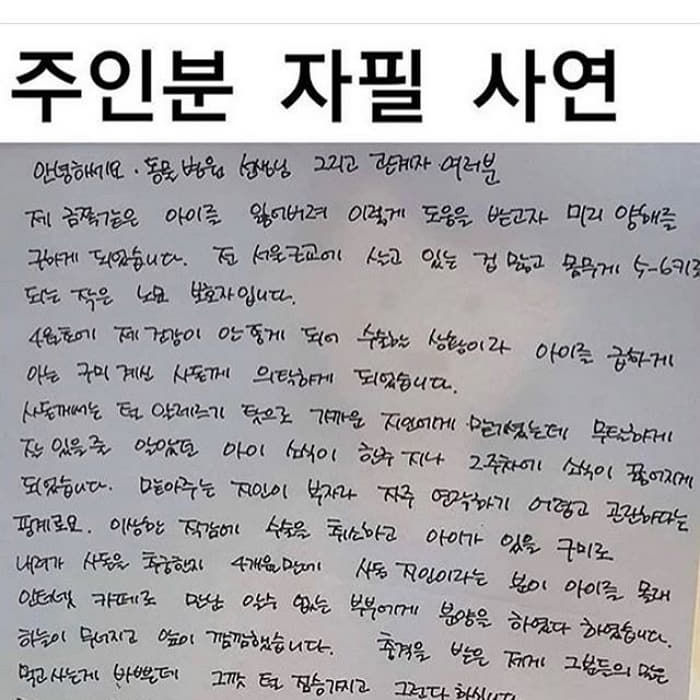 주인분 자필 사연
안녕하세요. 동물 병원 선생님 그리고 관계자 여러분
제 금쪽같은 아이를 잃어버려 이렇게 도움을 받고자 미리 양해를
구하게 되었습니다. 전 서울근교에 살고 있는 겁 많고 몸무게 5-6키로
되는 작은 노묘 보호자입니다.
4월초에 제 건강이 안 좋게 되어 수술하는 상황이라 아이를 급하게
아는 구미 계신 사돈께 의탁하게 되었습니다.
사돈께서는 털 알레르기 탓으로 가까운 지인에게 맡기셨는데 무탈하게
잘 있을줄 알았던 아이 소식이 한주 지나 2주차에 소식이 끊어지게
되었습니다. 맡아주는 지인이 부자라 자주 연락하기 어렵고 곤란하다는
핑계로요. 이상한 직감에 수술을 취소하고 아이가 있을 구미로
내려가 사돈을 추궁한지 4개월만에 사돈 지인이라는 분이 아이를 몰래
인터넷 카페로 만난 알수 없는 부부에게 분양을 하였다 하였습니다.
하늘이 무너지고 앞이 깜깜했습니다. 충격을 받은 저에게 그분들의 말은
먹고사는게 바쁜데 그깟 털 짐승가지고 그런다 하십니다